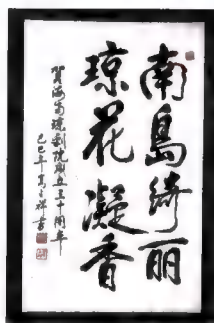 南島绮丽
琼花凝香
贺海南琼剧院成立三十周年
己巳年